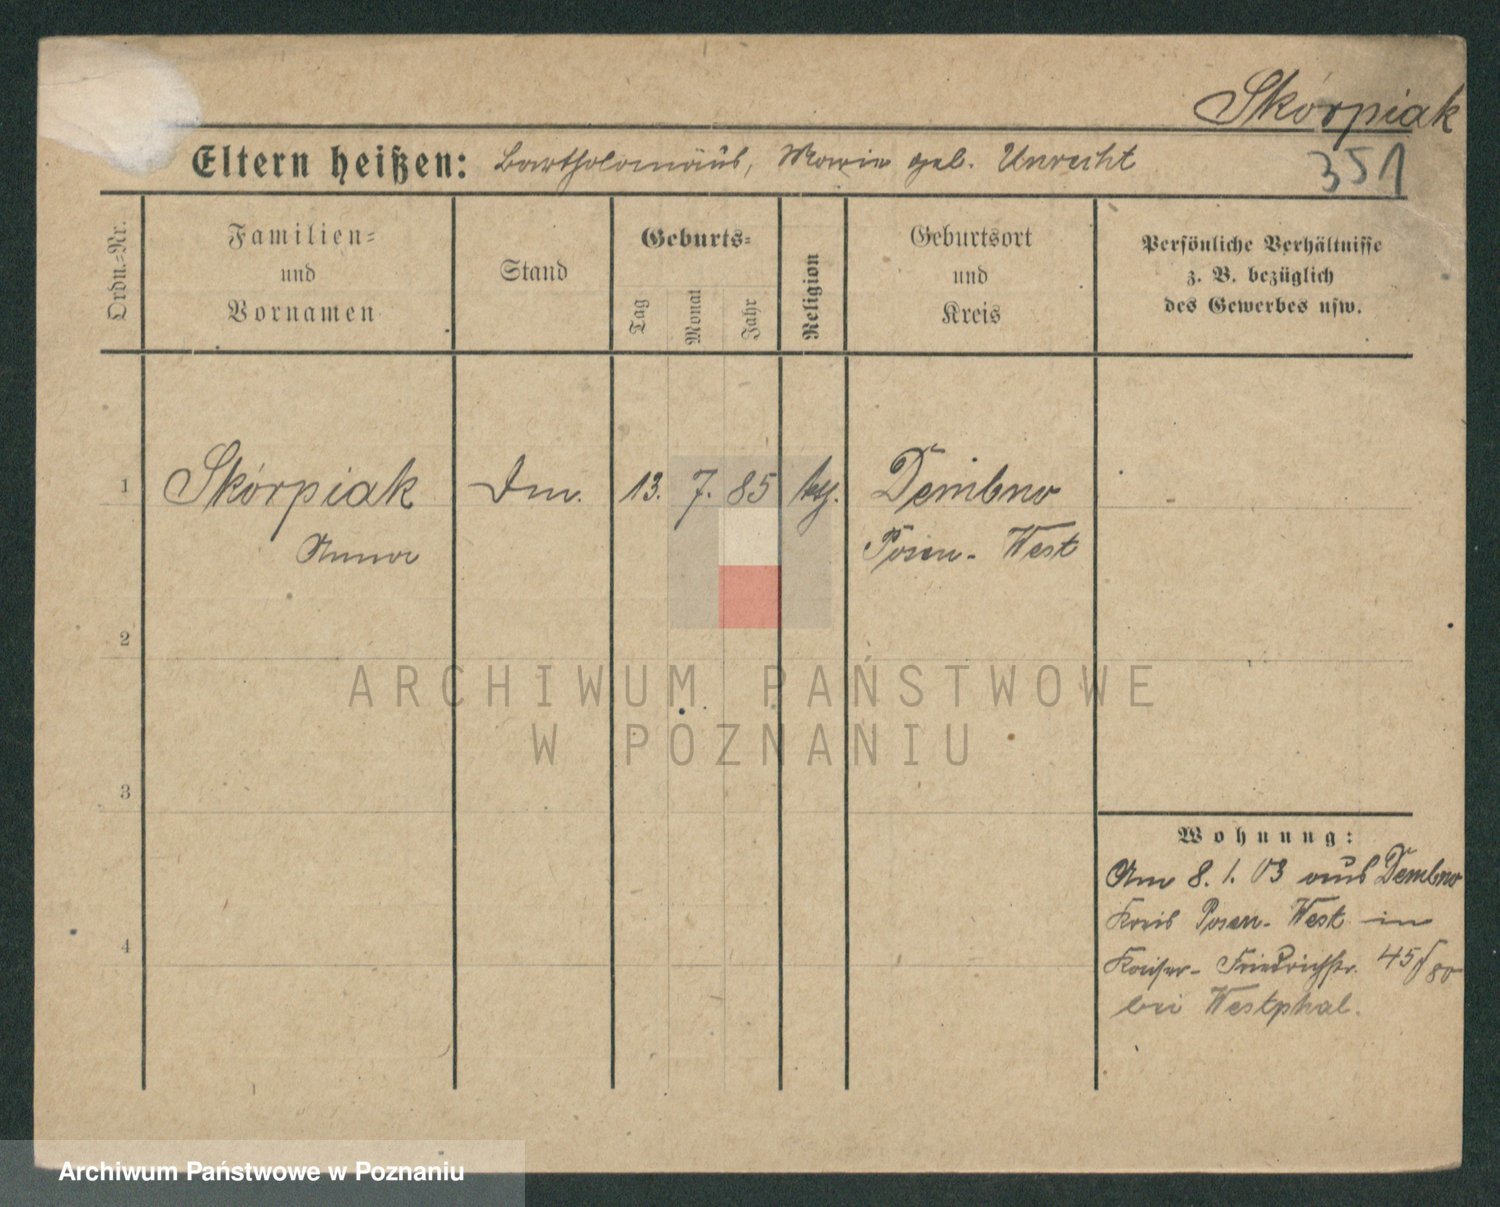 Skórpiak
Eltern heißen: Bartholomäus, Marie geb. Unrecht
351
Ordn.-Nr.
Familien-
und
Vornamen
Stand
Geburts-
Tag
Monat
Jahr
Religion
Geburtsort
und
Kreis
Persönliche Verhältnisse
z. B. bezüglich
des Gewerbes usw.
1 Skórpiak 13. 7. 85 Dembno
Anna Posen-West
2
ARCHIWUM PAŃSTWOWE
W POZNANIU
3
Wohnung:
Am 8. 1. 03 aus Dembno
4
Kreis Posen-West in
Kaiser-Friedrichstr. 45
bei Westphal.
Archiwum Państwowe w Poznaniu